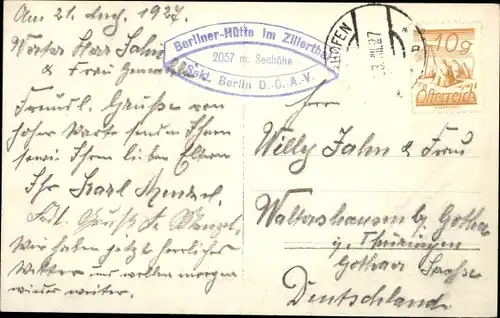 Am 21. Aug. 1927.
Werter Herr Jahn
& Frau Gemahlin
Freundl. Grüße von
hoher Warte senden Ihnen
sowie Ihren lieben Eltern
Ihr Karl
Frdl. Gruß Fr. Wenzel.
Wir haben jetzt herrliches
Wetter und wollen morgen
wieder weiter.
Berliner-Hütte im Zillerthal
2057 m. Seehöhe
Sekt. Berlin D.Ö.A.V.
HOFEN
VIII.27
10g
Österreich
Herrn
Willy Jahn & Frau
Waltershausen b/ Gotha
Thüringen
Gothaer
Deutschland.